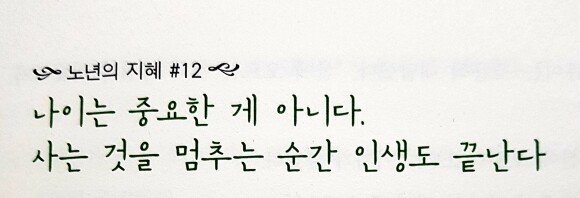 노년의 지혜 #12
나이는 중요한 게 아니다.
사는 것을 멈추는 순간 인생도 끝난다